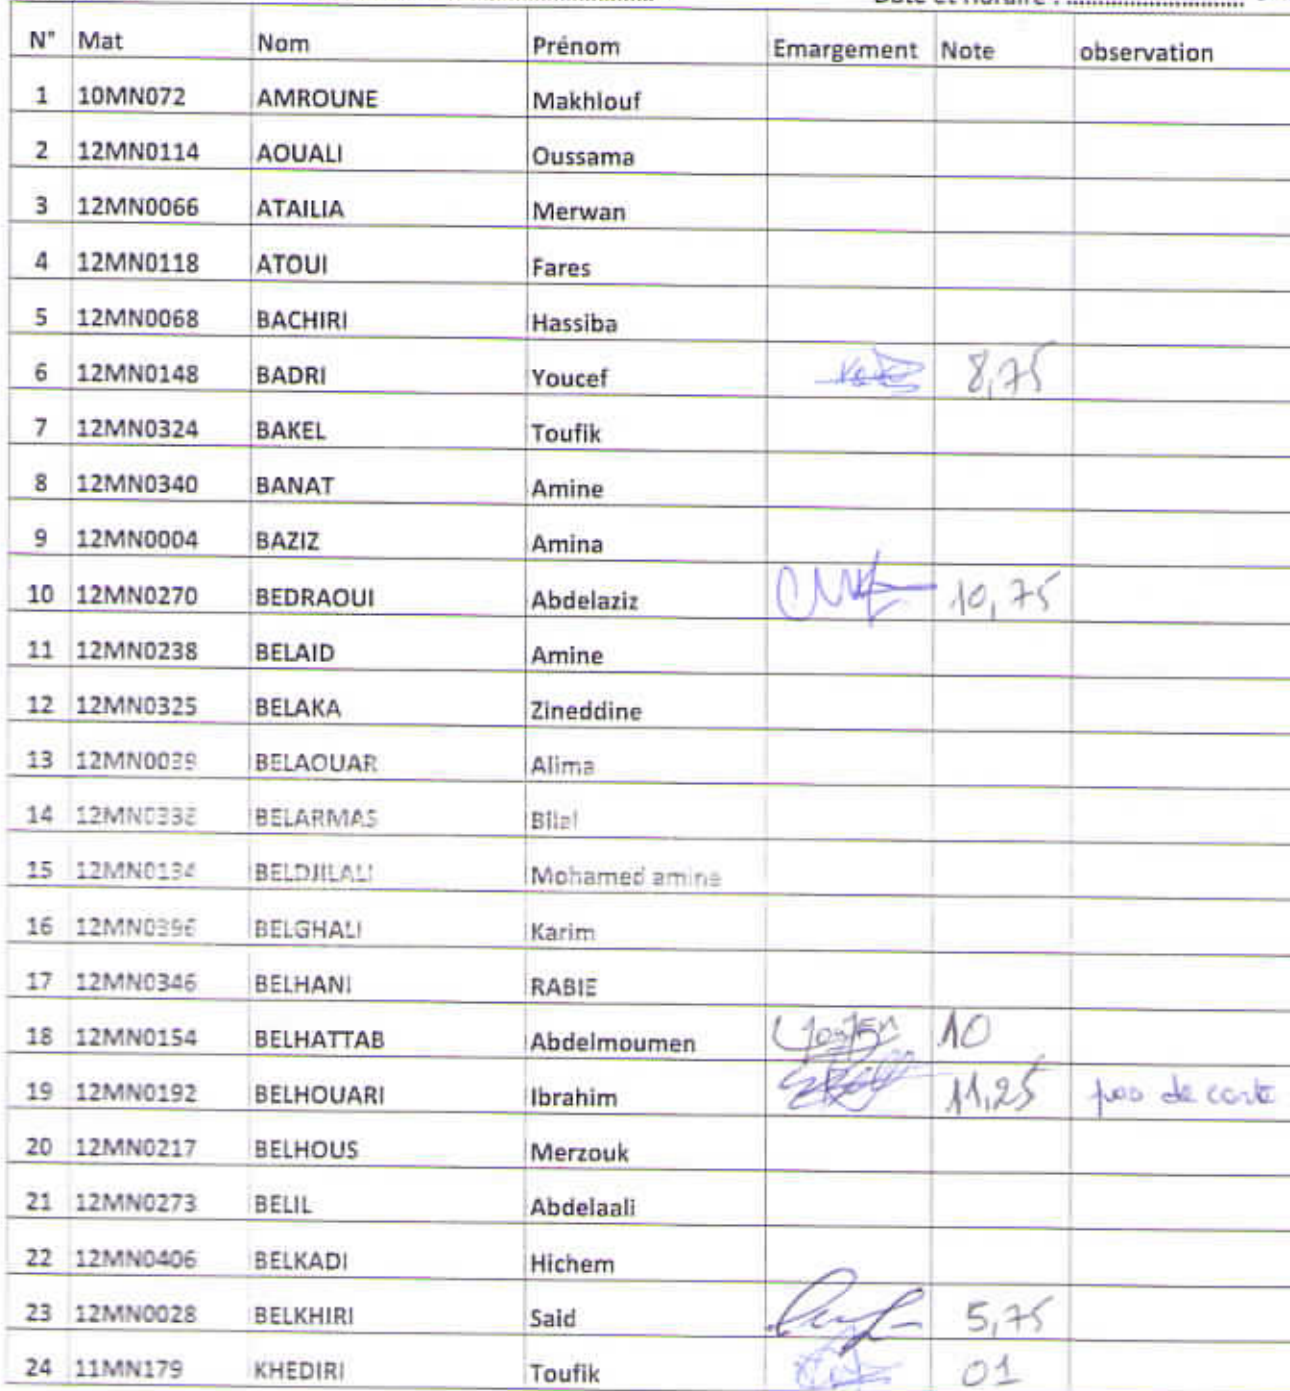 Date et Horaire : ..............................
N° Mat Nom Prénom Emargement Note observation
1 10MN072 AMROUNE Makhlouf
2 12MN0114 AOUALI Oussama
3 12MN0066 ATAILIA Merwan
4 12MN0118 ATOUI Fares
5 12MN0068 BACHIRI Hassiba
6 12MN0148 BADRI Youcef 8,75
7 12MN0324 BAKEL Toufik
8 12MN0340 BANAT Amine
9 12MN0004 BAZIZ Amina
10 12MN0270 BEDRAOUI Abdelaziz 10,75
11 12MN0238 BELAID Amine
12 12MN0325 BELAKA Zineddine
13 12MN0039 BELAOUAR Alima
14 BELARMAS Bilal
15 12MN0134 BELDJILALI Mohamed amine
16 12MN0396 BELGHALI Karim
17 12MN0346 BELHANI RABIE
18 12MN0154 BELHATTAB Abdelmoumen 10
19 12MN0192 BELHOUARI Ibrahim 11,25 pas de carte
20 12MN0217 BELHOUS Merzouk
21 12MN0273 BELIL Abdelaali
22 12MN0406 BELKADI Hichem
23 12MN0028 BELKHIRI Said 5,75
24 11MN179 KHEDIRI Toufik 01